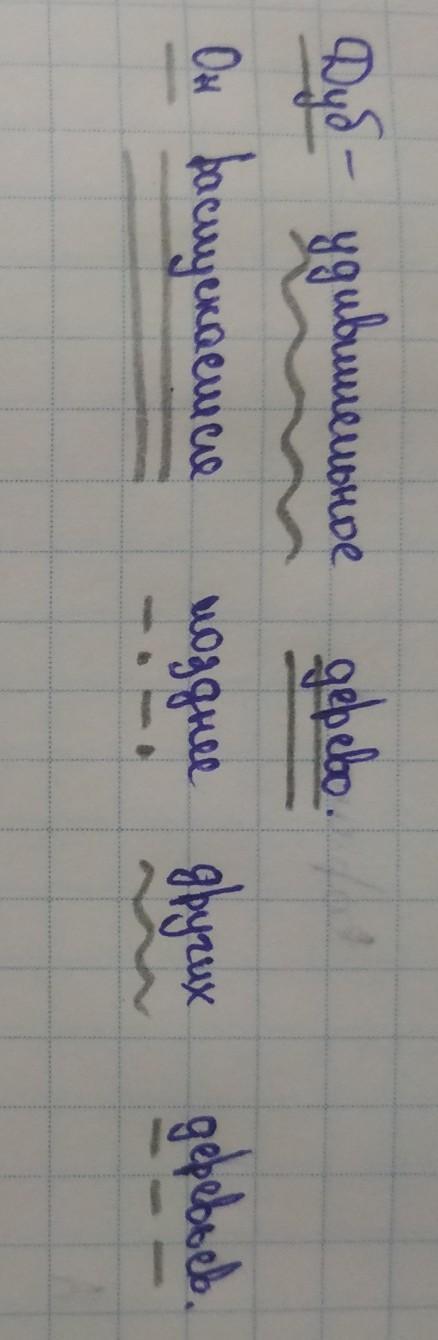 Дуб - удивительное дерево.
Он распускается позднее других деревьев.